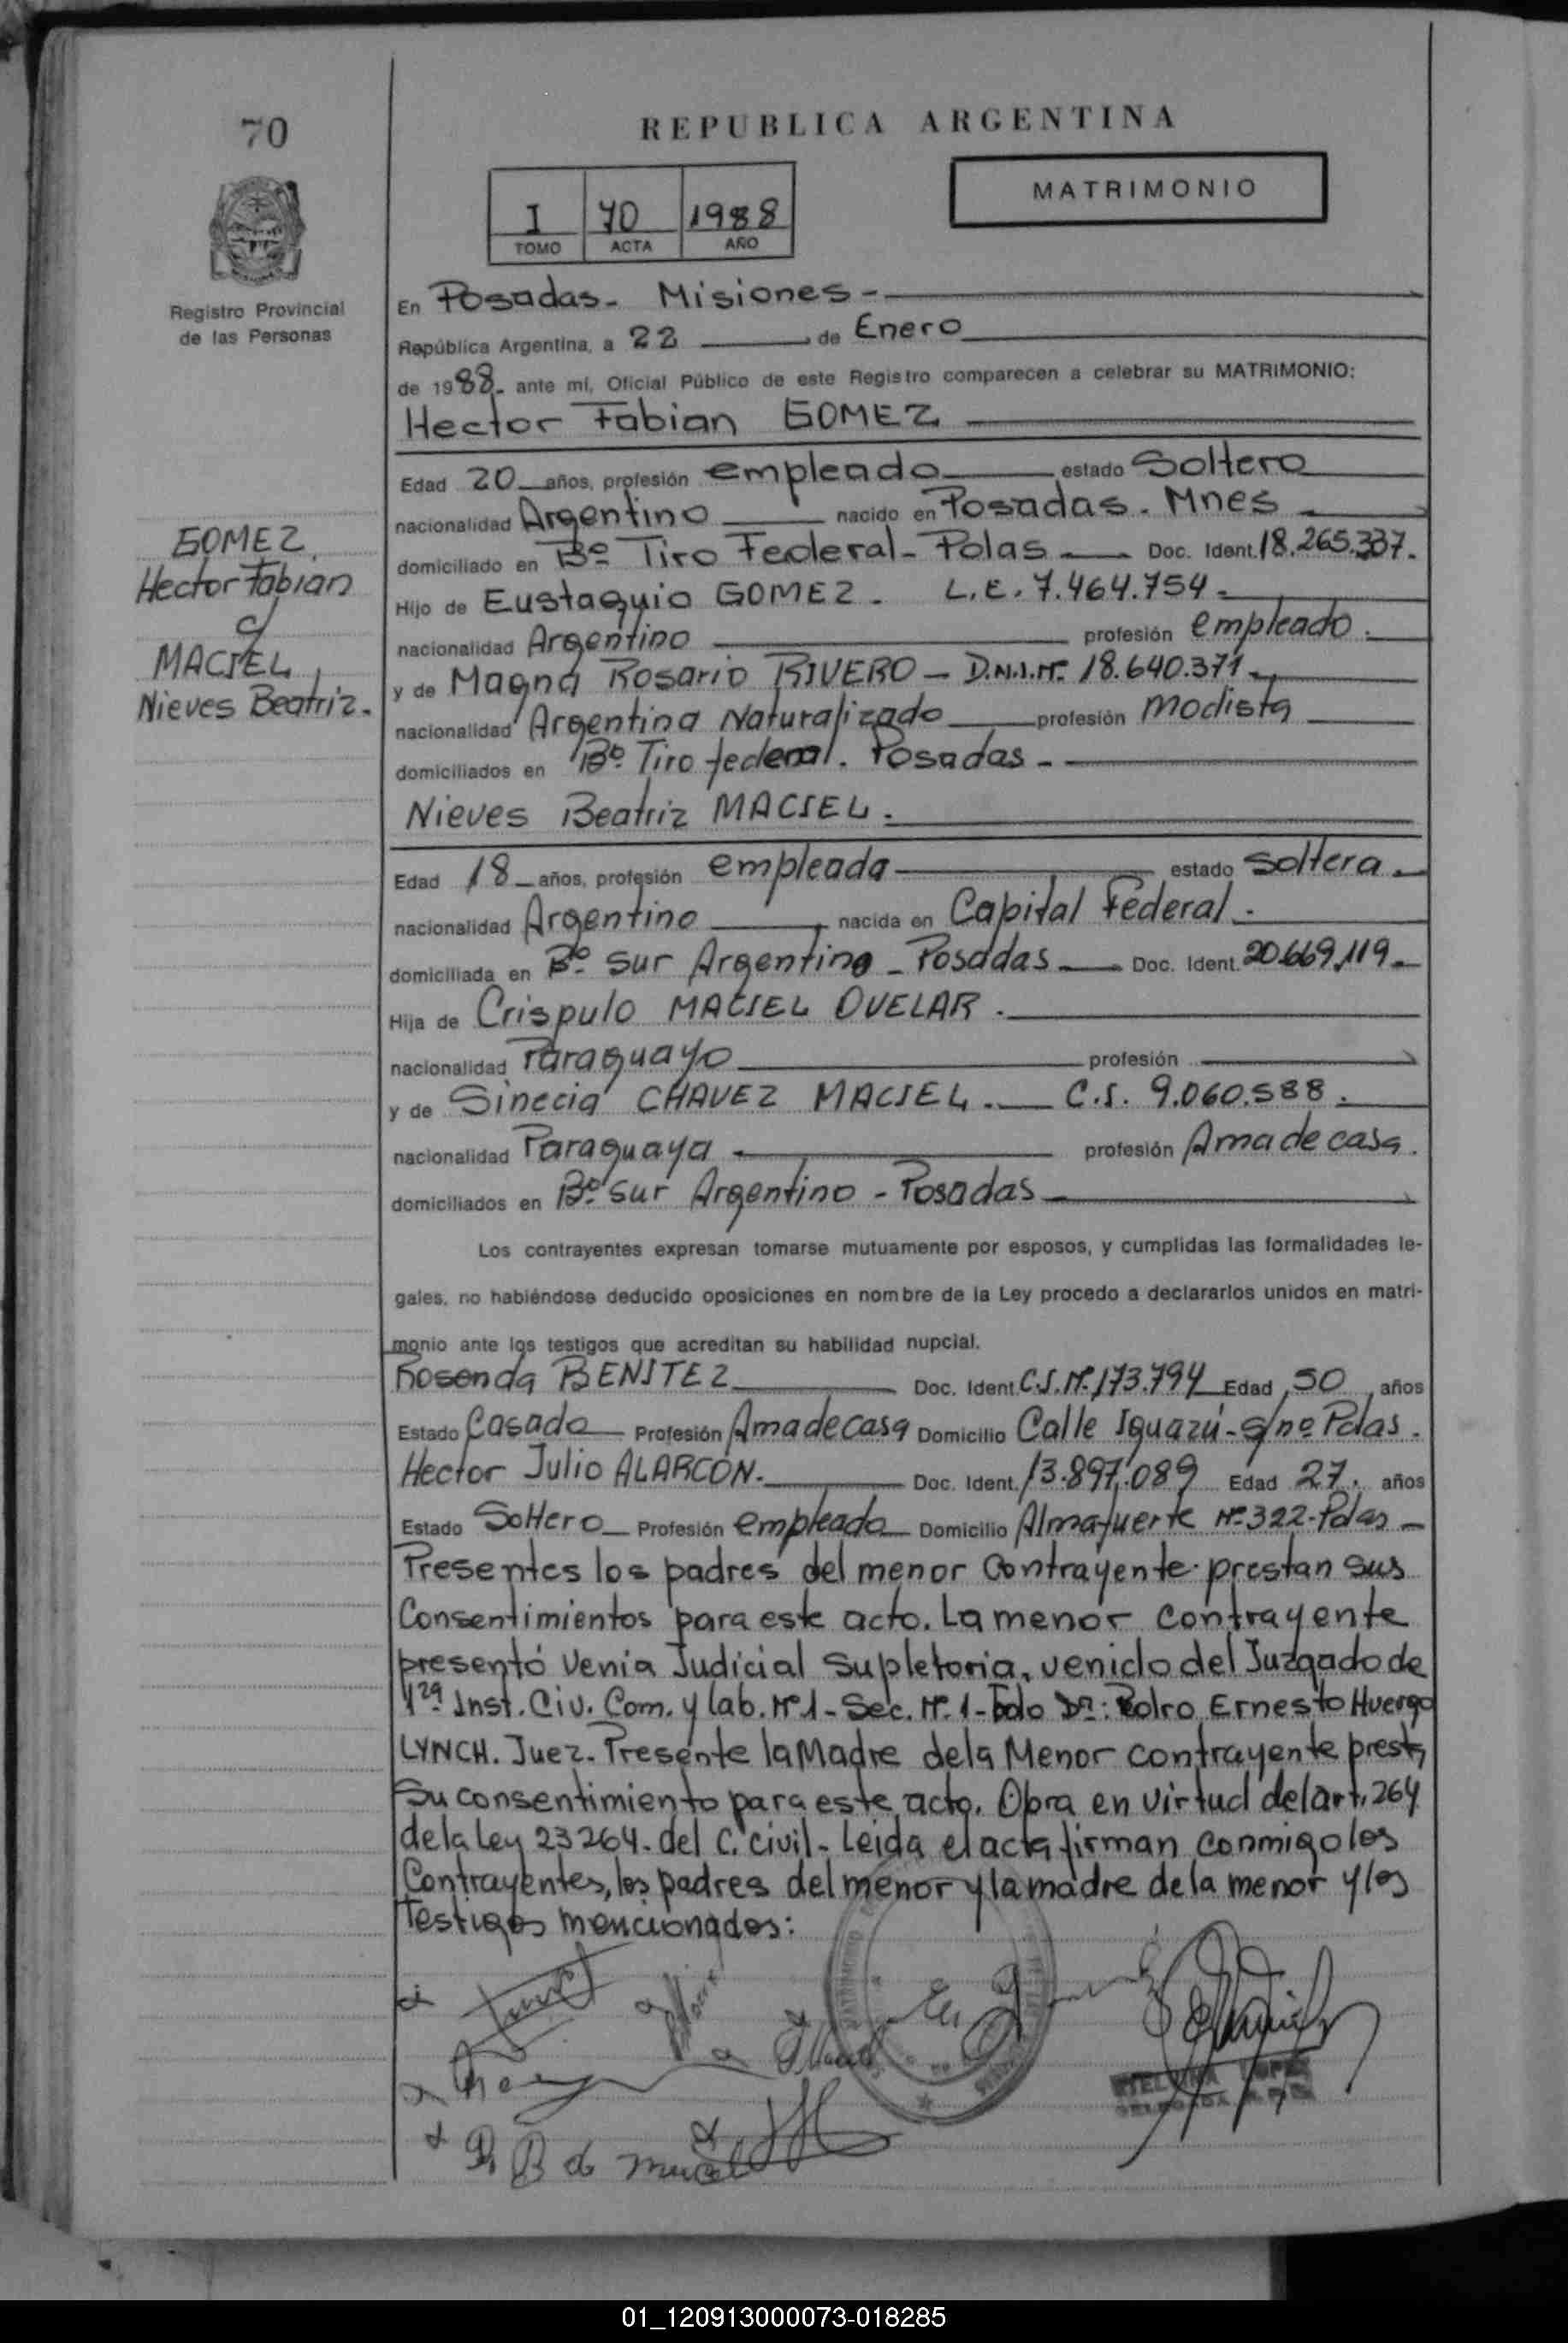 70
REPUBLICA ARGENTINA
I 70 1988
TOMO ACTA AÑO
MATRIMONIO
Registro Provincial
de las Personas
En Posadas - Misiones -
República Argentina, a 22 de Enero
de 1988 - ante mí, Oficial Público de este Registro comparecen a celebrar su MATRIMONIO:
Hector Fabian GOMEZ
Edad 20 años, profesión empleado estado Soltero
nacionalidad Argentino nacido en Posadas - Mnes
domiciliado en Bº Tiro Federal - Pdas Doc. Ident. 18.265.337.
Hijo de Eustaquio GOMEZ - L.E. 7.464.754 -
nacionalidad Argentino profesión empleado.
y de Magna Rosario RIVERO - D.N.I.Nº 18.640.371 -
nacionalidad Argentina Naturalizado profesión Modista
domiciliados en Bº Tiro federal. Posadas -
GOMEZ
Hector Fabian
c/
MACIEL
Nieves Beatriz.
Nieves Beatriz MACIEL.
Edad 18 años, profesión empleada estado soltera
nacionalidad Argentino nacida en Capital Federal -
domiciliada en Bº Sur Argentino - Posadas Doc. Ident. 20.669.119 -
Hija de Crispulo MACIEL OVELAR.
nacionalidad Paraguayo profesión
y de Sinecia CHAVEZ MACIEL. C.I. 9.060.588.
nacionalidad Paraguaya profesión Ama de casa.
domiciliados en Bº Sur Argentino - Posadas
Los contrayentes expresan tomarse mutuamente por esposos, y cumplidas las formalidades le-
gales, no habiéndose deducido oposiciones en nombre de la Ley procedo a declararlos unidos en matri-
monio ante los testigos que acreditan su habilidad nupcial.
Rosenda BENITEZ Doc. Ident. C.I.Nº 173.794 Edad 50 años
Estado Casado Profesión Ama de casa Domicilio Calle Iguazú - s/nº Pdas.
Hector Julio ALARCON. Doc. Ident. 13.897.089 Edad 27. años
Estado Soltero Profesión empleado Domicilio Almafuerte Nº 322 - Pdas
Presentes los padres del menor contrayente prestan sus
Consentimientos para este acto. La menor contrayente
presentó Venia Judicial Supletoria, venido del Juzgado de
1ra. Inst. Civ. Com. y Lab. Nº 1 - Sec. Nº 1 - Fdo Dr: Pdro Ernesto Huergo
LYNCH. Juez. Presente la Madre de la Menor contrayente presta
Su consentimiento para este acto. Obra en virtud del art. 264
de la Ley 23264 - del C. Civil - Leida el acta firman conmigo los
Contrayentes, los padres del menor y la madre de la menor y los
Testigos mencionados:
01_120913000073-018285